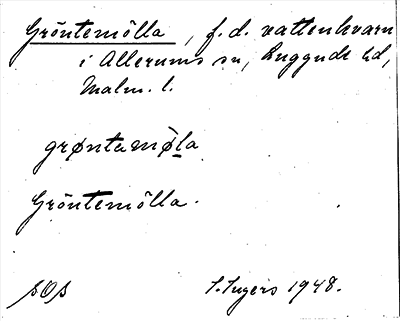 Gröntemölla, f.d. vattenkvarn
i Allerums sn, Luggude hd,
Malm. l.
grøntamø̀la
Gröntemölla.
SOS
S. Ingers 1948.